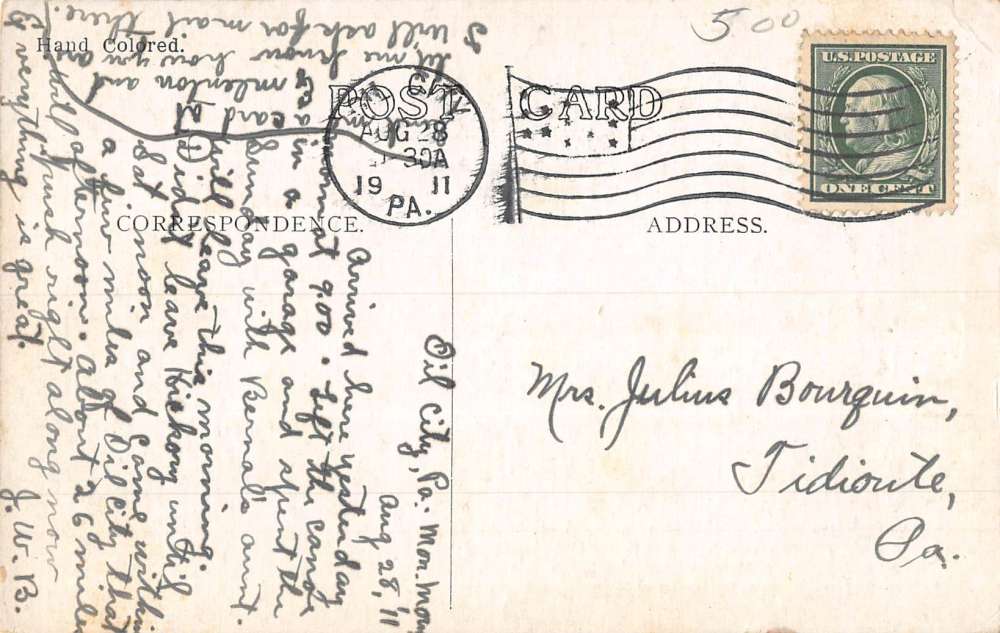 Hand Colored.
5.00
POST CARD
U.S. POSTAGE
ONE CENT
CITY
AUG 28
30A
19 11
PA.
CORRESPONDENCE.
ADDRESS.
Mrs. Julius Bourquin,
Tidioute,
Pa.
Oil City, Pa. Mon. Morn
Aug. 28, '11
Arrived here yesterday
at 9.00. Left the canoe
in a garage and spent the
Sunday with Bernal's aunt.
Will leave this morning.
Did't leave Hickory until
Sat. noon and came within
a few miles of Oil City that
afternoon. About 26 miles
Will push right along now
Everything is great. J. W. B.
a card at
Emlenton and
let me know how you are
I will ask for mail there.